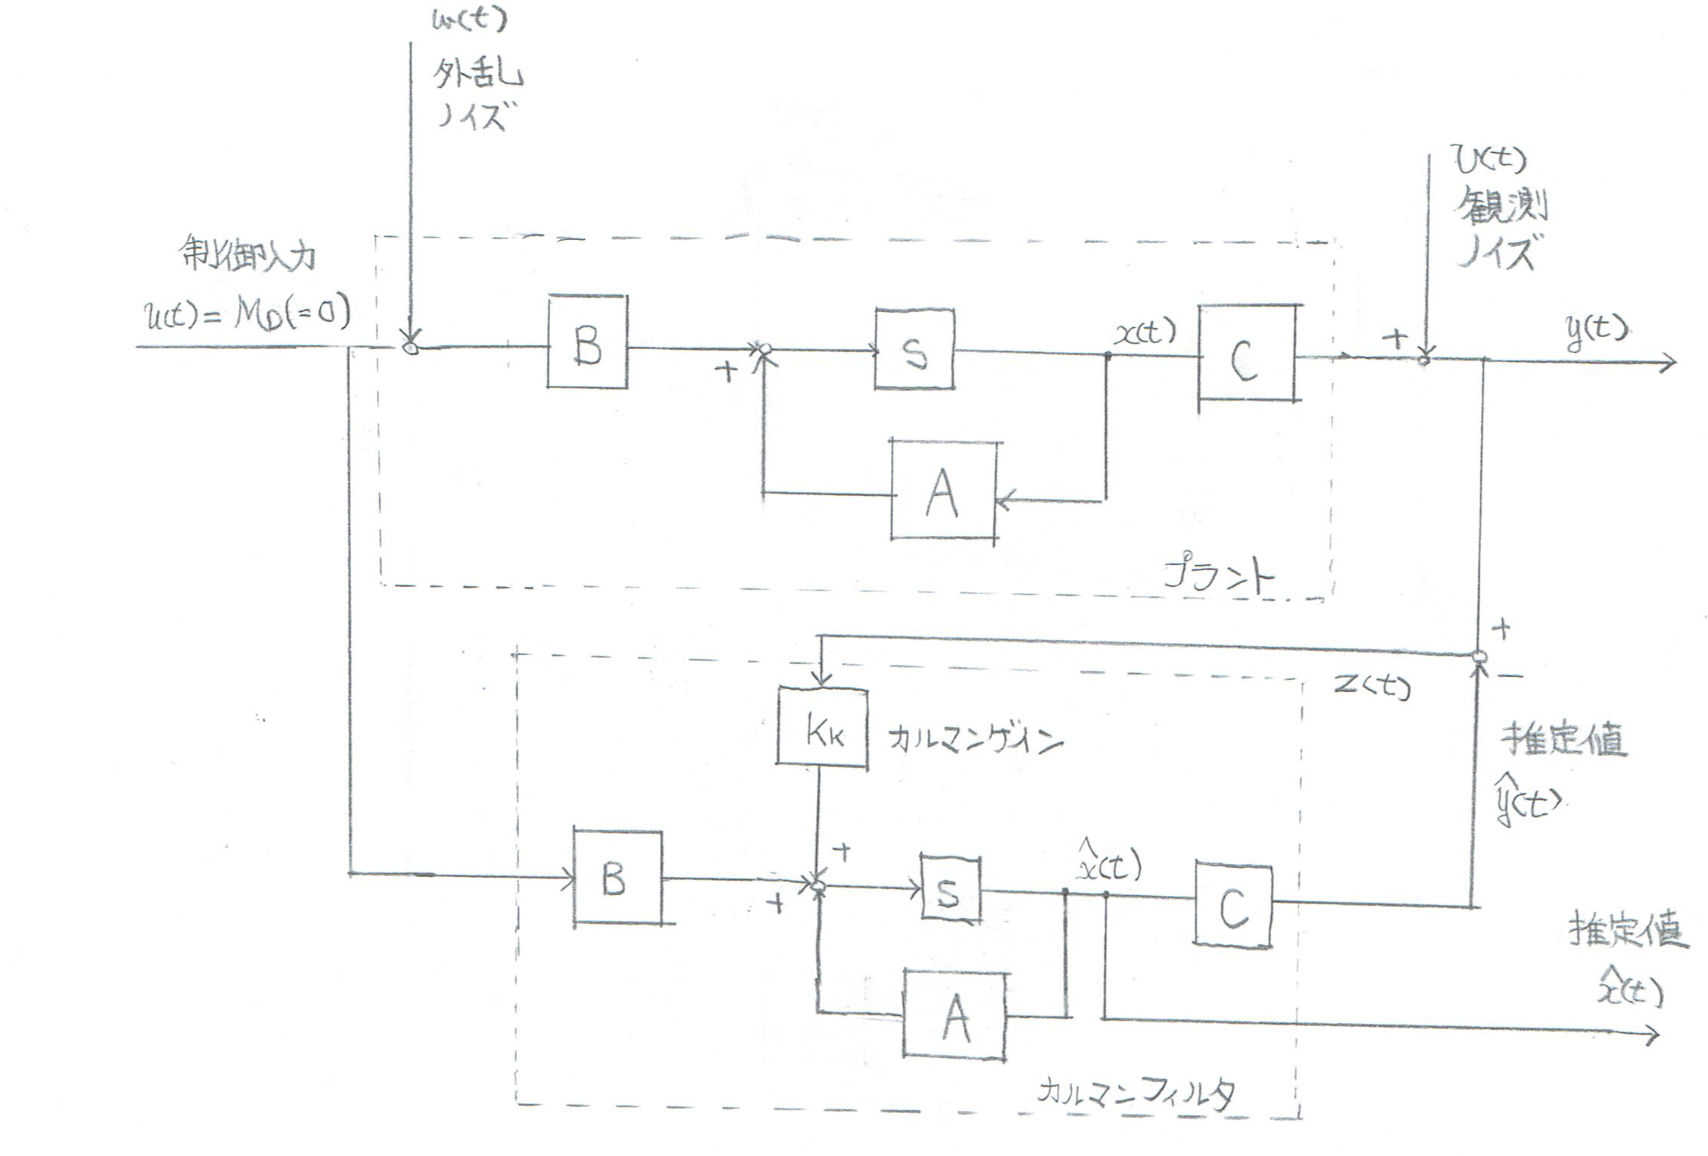 w(t)
外乱し
ノイズ
v(t)
観測
ノイズ
制御入力
u(t)=MD(=0)
B
+
S
x(t)
C
+
y(t)
A
プラント
+
z(t)
−
KK
カルマンゲイン
推定値
ŷ(t)
B
+
+
S
x̂(t)
C
推定値
x̂(t)
A
カルマンフィルタ